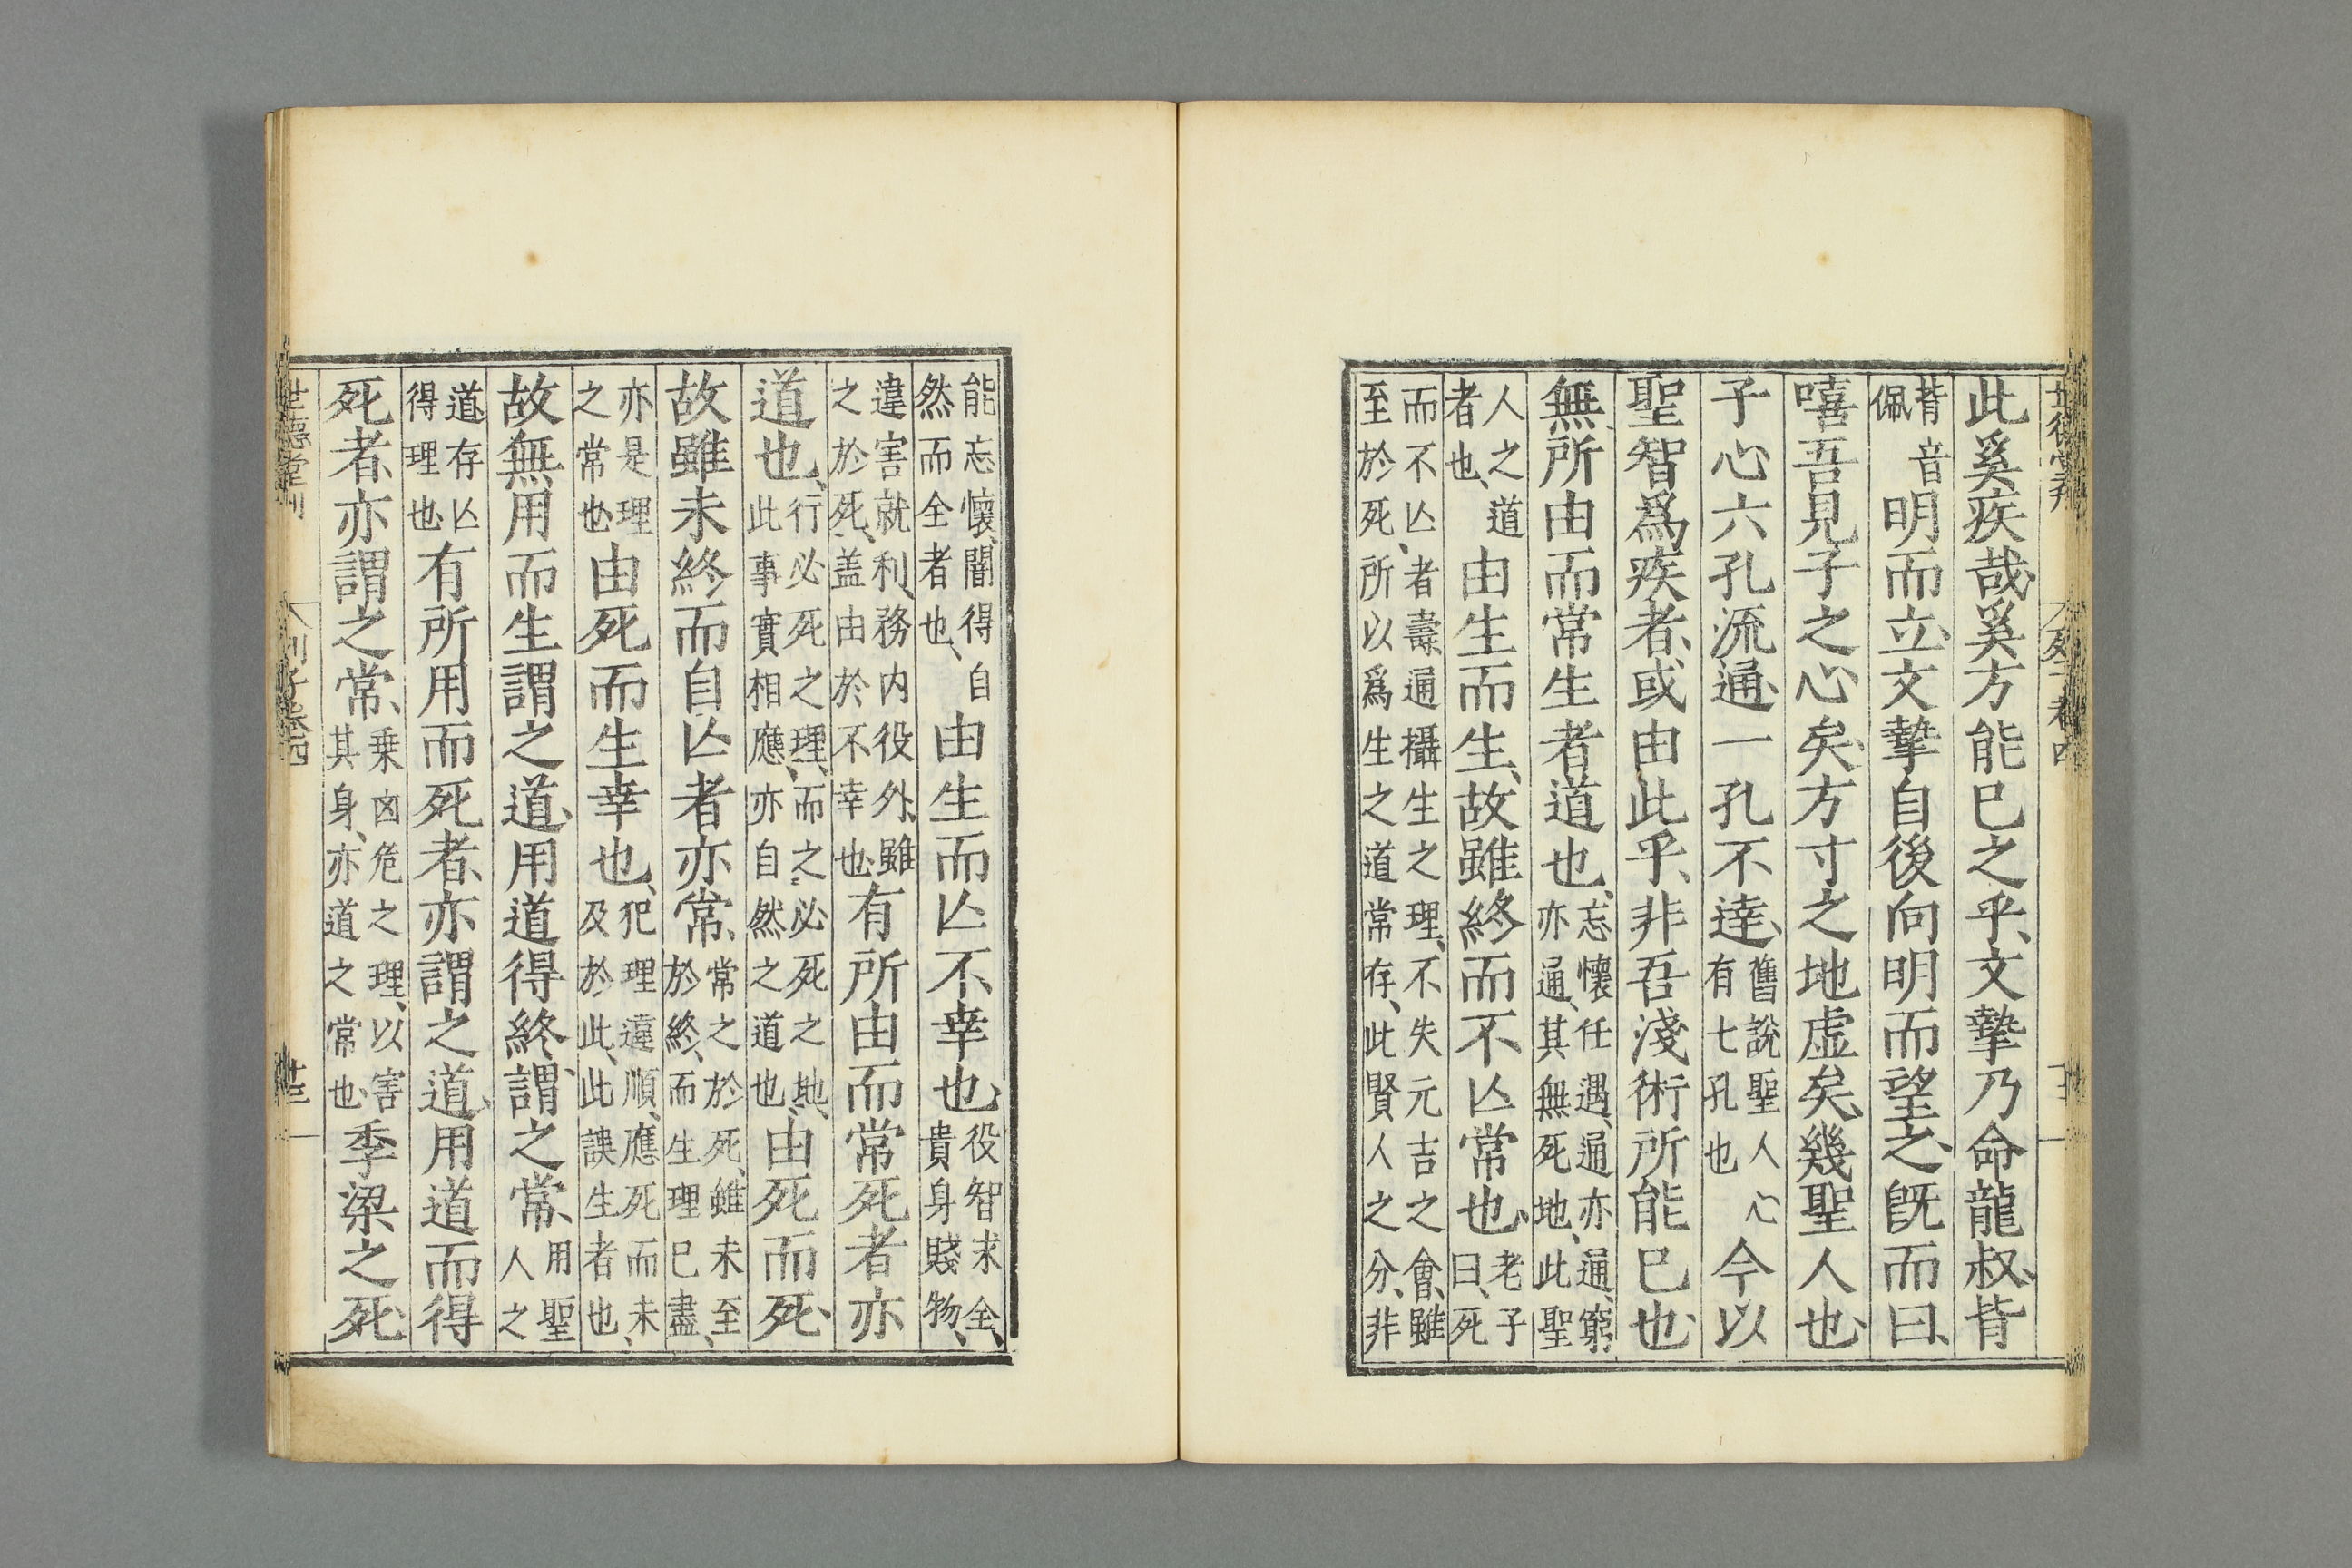 此奚疾哉奚方能已之乎、文摯乃命龍叔、背
背音佩明而立、文摯自後向明而望之、旣而曰、
嘻吾見子之心矣、方寸之地虛矣、幾聖人也、
子心六孔流通、一孔不達、舊說聖人心有七孔也今以
聖智爲疾者、或由此乎、非吾淺術所能已也、
無所由而常生者道也、忘懷任遇、通亦通、窮亦通、其無死地、此聖
人之道者也、由生而生、故雖終而不亾常也、老子曰、死
而不亾者壽、通攝生之理、不失元吉之會、雖至於死、所以爲生之道常存、此賢人之分、非
能忘懷、闇得自然而全者也、由生而亾不幸也、役智求全、貴身賤物、
違害就利、務內役外、雖之於死、盖由於不幸也、有所由而常死者亦
道也、行必死之理、而之必死之地、此事實相應、亦自然之道也、由死而死、
故雖未終而自亾者亦常、常之於死、雖未至於終、而生理已盡、
亦是理之常也、由死而生幸也、犯理違順、應死而未及於此、此誤生者也、
故無用而生謂之道、用道得終、謂之常、用聖人之
道、存亾得理也有所用而死者、亦謂之道、用道而得
死者、亦謂之常、乗凶危之理、以害其身、亦道之常也、季梁之死、
世德堂刊
列子卷四
十三